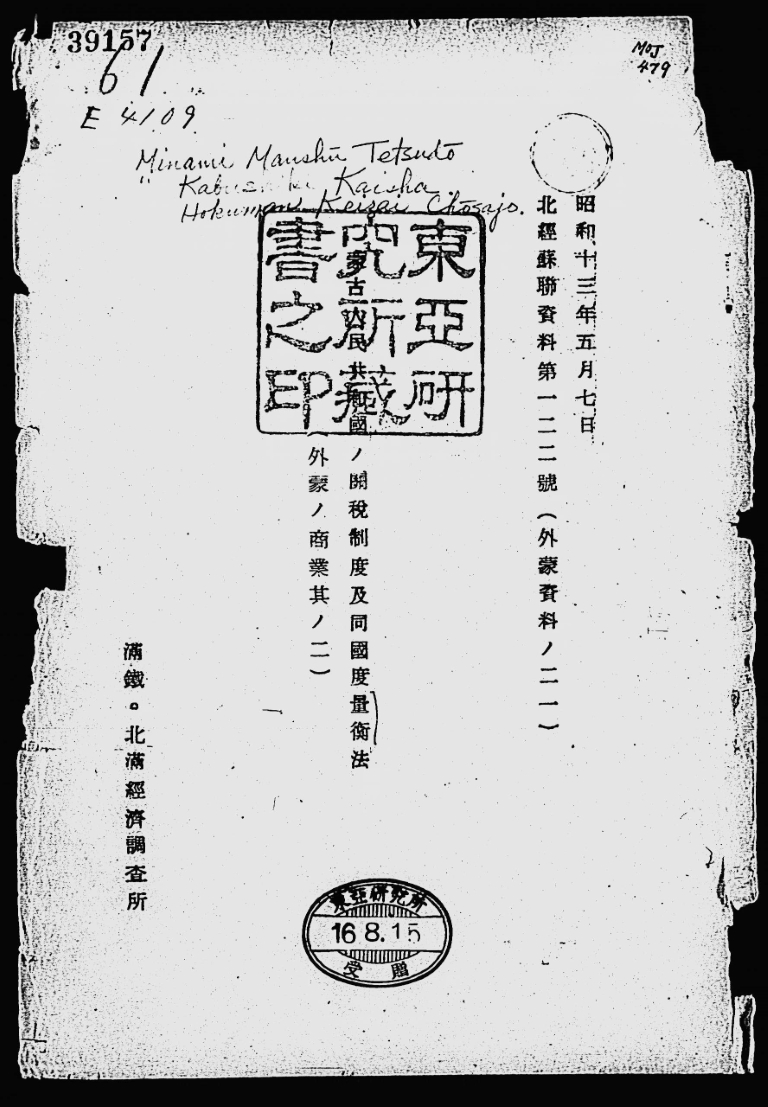 39157
61
E 4109
MOJ
479
Minami Manshū Tetsudō
" Kabushiki Kaisha
Hokuman Keizai Chōsajo.
昭和十三年五月七日
北經蘇聯資料第一二二號(外蒙資料ノ二一)
東亞研
究所藏
書之印
蒙古人民共和國ノ關稅制度及同國度量衡法
(外蒙ノ商業其ノ二)
滿鐵。北滿經濟調査所
東亞研究所
16.8.15
受贈